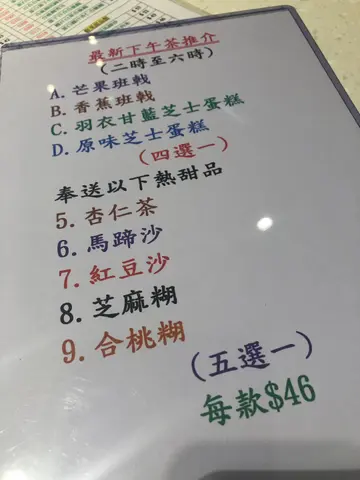 最新下午茶推介
(二時至六時)
A. 芒果班戟
B. 香蕉班戟
C. 羽衣甘藍芝士蛋糕
D. 原味芝士蛋糕
(四選一)
奉送以下熱甜品
5. 杏仁茶
6. 馬蹄沙
7. 紅豆沙
8. 芝麻糊
9. 合桃糊
(五選一)
每款$46